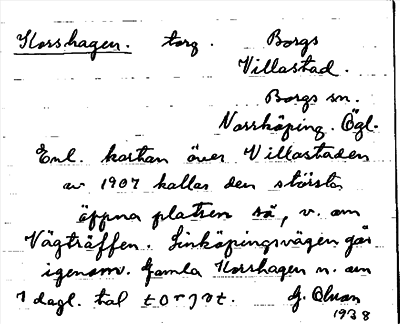 Korshagen. torg. Borgs
Villastad.
Borgs sn.
Norrköping. Ögl.
Enl. kartan över Villastaden
av 1907 kallas den största
öppna platsen så, v. om
Vägträffen. Linköpingsvägen går
igenom. Gamla Korshagen n. om
I dagl. tal torjet. G. Olson
1938